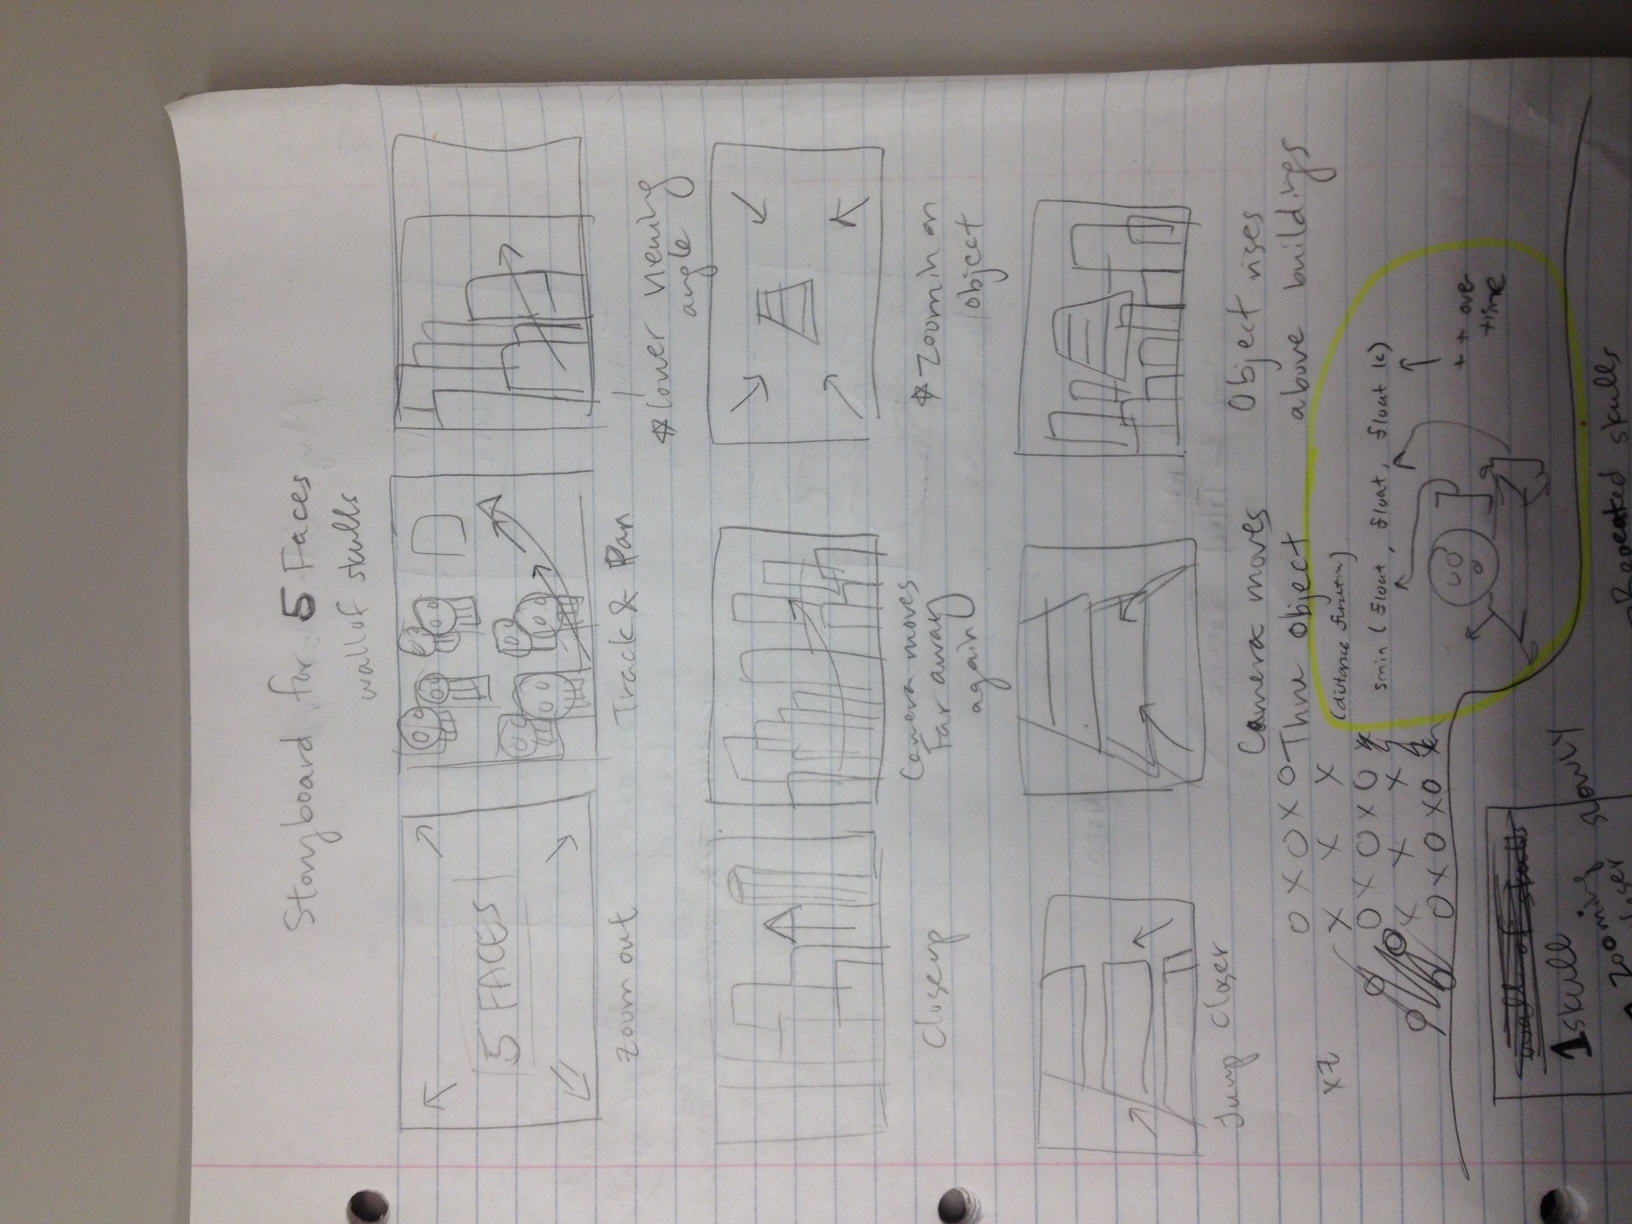 Storyboard for 5 Faces
wall of skulls
5 FACES
Zoom out
Track & Pan
lower viewing
angle
Closeup
Camera moves
Far away
again
Zoom in on
object
Jump Closer
Camera moves
Thru object
Object rises
above buildings
O X O X O
X X X
O X O X O X
X X X
O X O X O X
(distance function)
smin ( float , float , float k)
+ + over
time
wall of skulls
1 skull
zooming
closer slowly
Repeated skulls